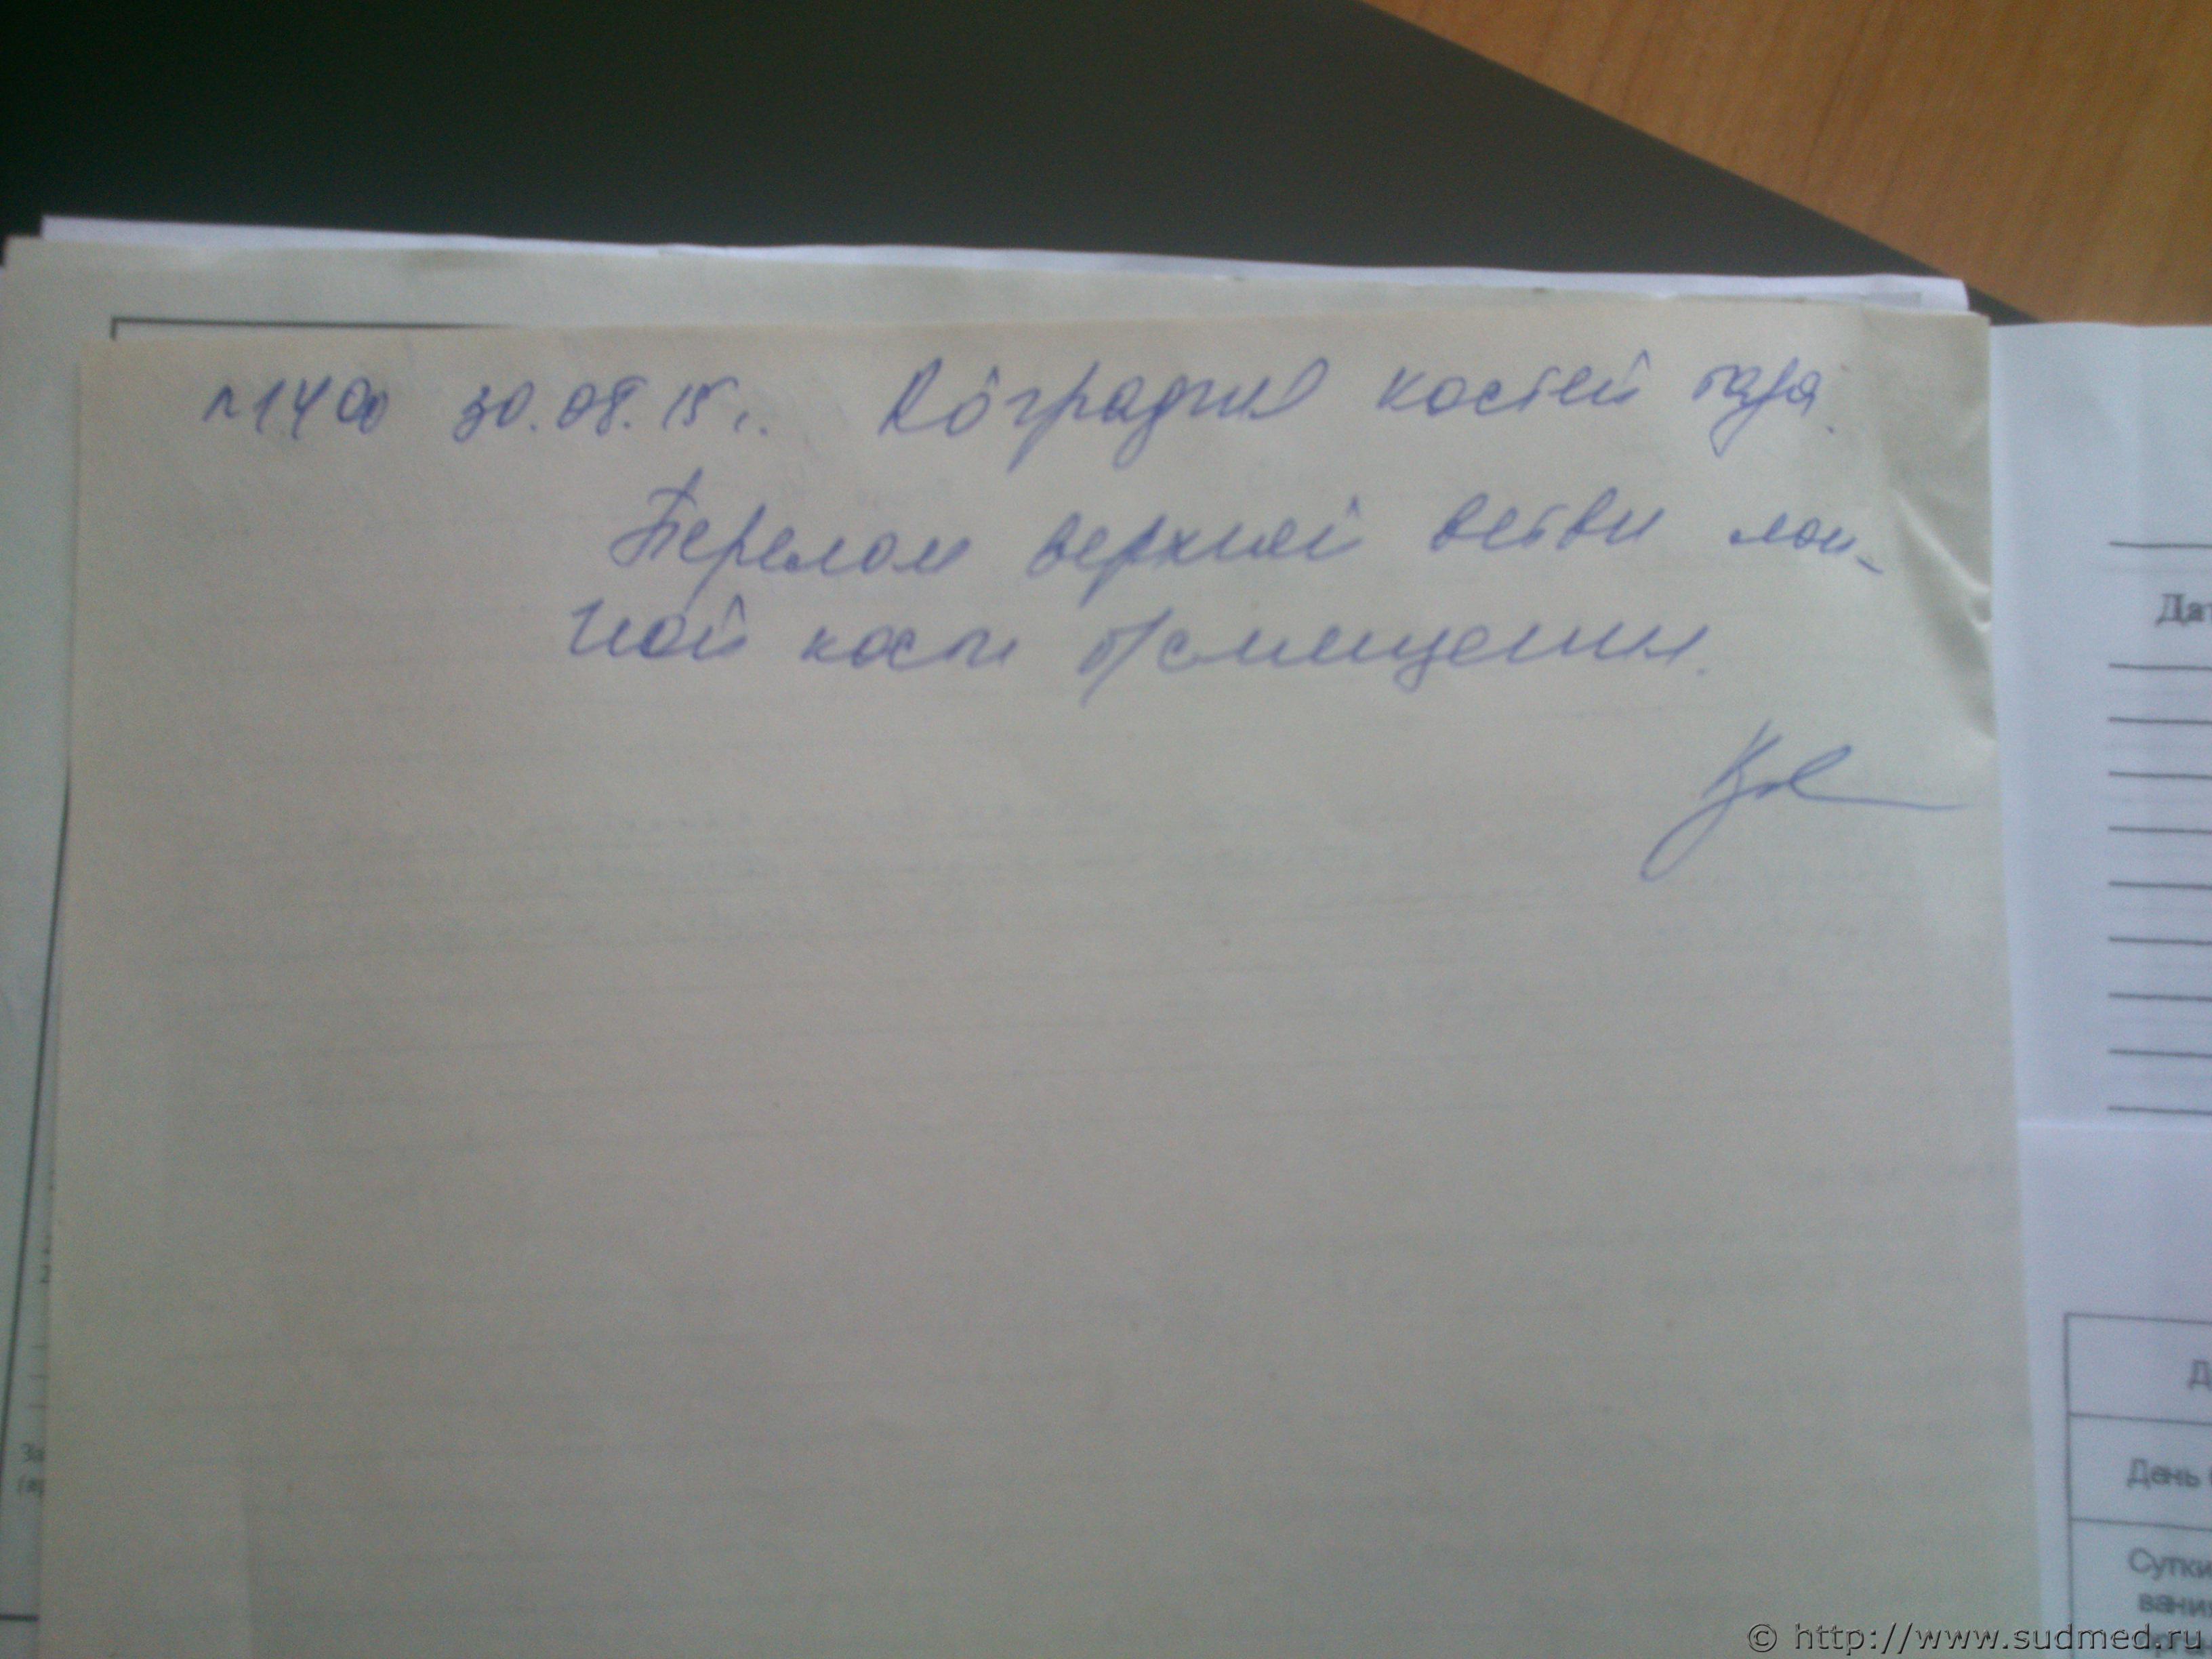 №1400 30.08.15г. R-ография костей таза.
Перелом верхней ветви лон-
ной кости б/смещения.
Дат
Д
День
Сутки
вания
За
© http://www.sudmed.ru